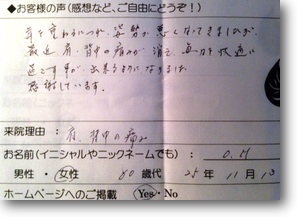 ◆お客様の声(感想など、ご自由にどうぞ！)
年を重ねるにつれ、姿勢が悪くなってきましたが、
最近肩、背中の痛みが消え、毎日を快適に
過ごす事が、出来るようになりました。
感謝しています。
来院理由： 肩、背中の痛み
お名前(イニシャルやニックネームでも)： O.M
男性 ・ 女性 80 歳代 25年 11月 13
ホームページへのご掲載 Yes・No